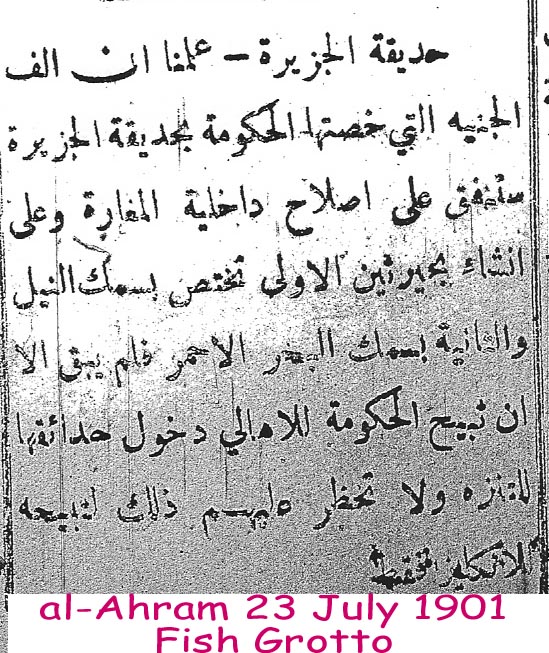 حديقة الجزيرة – علمنا ان الف
الجنيه التي خصتها الحكومة بحديقة الجزيرة
ستنفق على اصلاح داخلية المغارة وعلى
انشاء بحيرتين الاولى تختص بسمك النيل
والثانية بسمك البحر الاحمر فلم يبق الا
ان تبيح الحكومة للاهالي دخول حدائقها
للتنزه ولا تحظر عليهم ذلك لتبيحه
للانكليز فقط
al-Ahram 23 July 1901
Fish Grotto